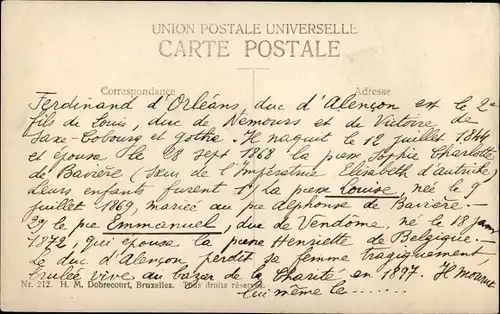 UNION POSTALE UNIVERSELLE
CARTE POSTALE
Correspondance
Adresse
Ferdinand d'Orléans, duc d'Alençon est le 2e
fils de Louis, duc de Nemours et de Victoire de
Saxe-Cobourg et Gotha. Il naquit le 12 juillet 1844
et épouse le 28 sept 1868 la psse Sophie Charlotte
de Bavière (Sœur de l'Impératrice Elisabeth d'Autriche)
Leurs enfants furent 1) la psse Louise, née le 9
juillet 1869, mariée au pce Alphonse de Bavière -
2) le pce Emmanuel, duc de Vendôme, né le 18 janv
1872, qui épousa la psse Henriette de Belgique.-
Le duc d'Alençon perdit sa femme tragiquement
brulée vive au bazar de la Charité en 1897. Il mourut
lui même le ........
Nr. 212. H. M. Dobrecourt, Bruxelles. Tous droits réservés.